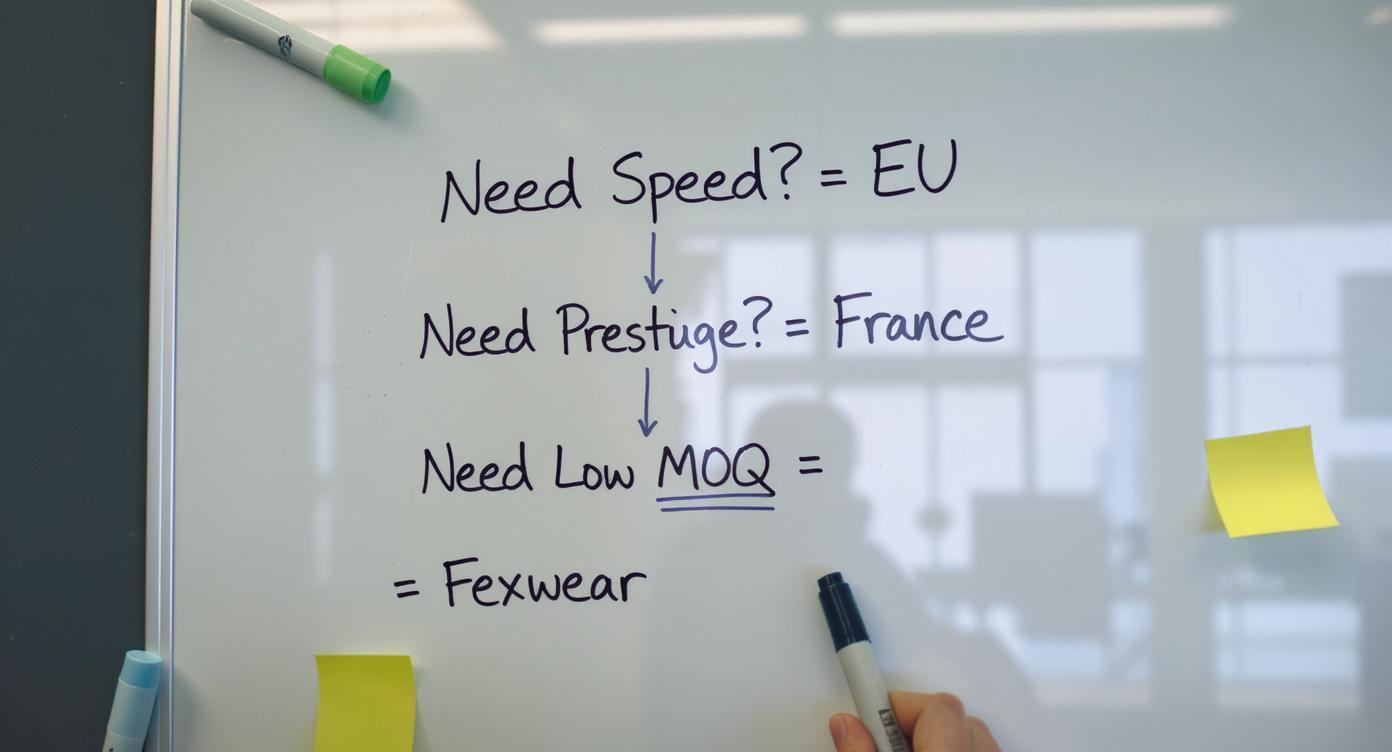 Need Speed? = EU
Need Prestige? = France
Need Low MOQ =
= Fexwear